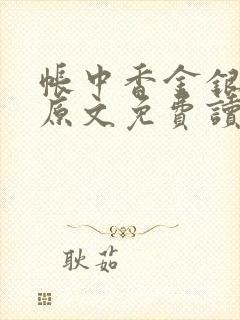 帳中香金銀
原文免費讀
耿茹